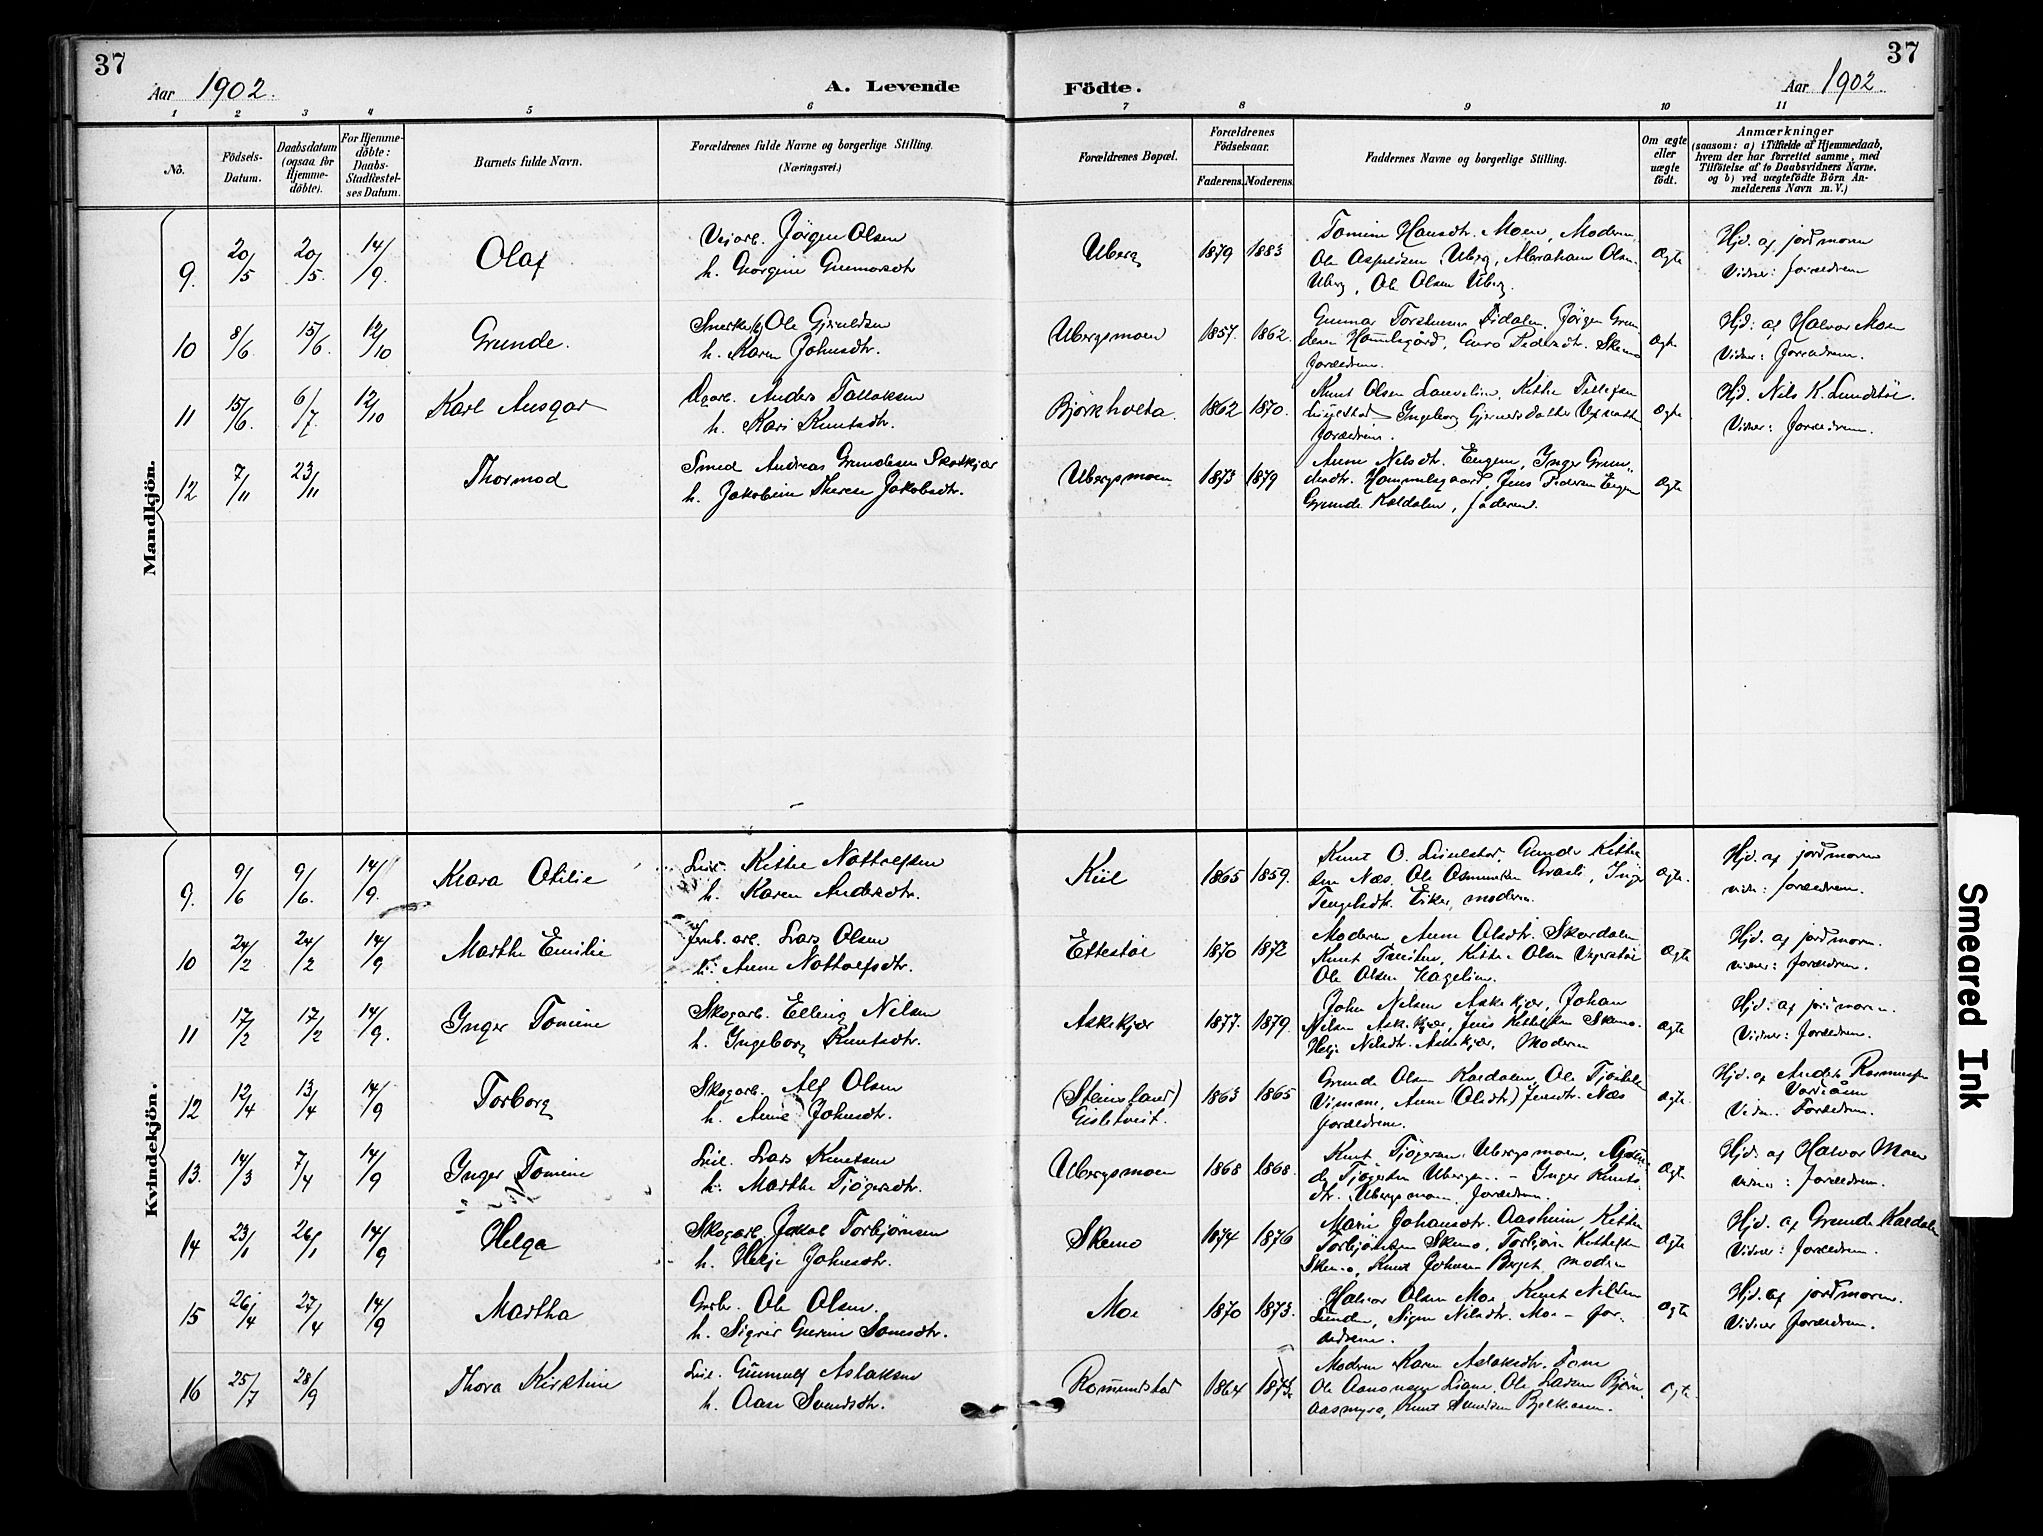 37
37
Aar 1902.
A. Levende Födte.
Aar 1902.
1 2 3 4 5 6 7 8 9 10 11
No.
Födsels-Datum.
Daabsdatum (ogsaa for Hjemme-döbte).
For Hjemme-döbte: Daabs-Stadfæstel-ses Datum.
Barnets fulde Navn.
Forældrenes fulde Navne og borgerlige Stilling. (Næringsvei.)
Forældrenes Bopæl.
Forældrenes Födselsaar.
Faderens. Moderens.
Faddernes Navne og borgerlige Stilling.
Om ægte eller uægte födt.
Anmærkninger
(saasom: a) i Tilfælde af Hjemmedaab,
hvem der har forrettet samme, med
Tilföielse af to Daabsvidners Navne.
og b) ved uægtefödte Börn An-
melderens Navn m. V.)
Mandkjön.
9. 20/5 20/5. 14/9. Olaf
Veiarb. Jörgen Olsen
h. Georgine Gunnarsdtr
Uberg 1879 1883
Tomine Hansdtr. Moen, Moderen,
Uberg, Abraham Olsen
Uberg, Ole Olsen Uberg.
Ægte
Hjd. af jordmoren
Vidner: Forældrene
10 8/6. 15/6. 12/10 Grunde.
Ole
h. Karen Johnsdtr.
Ubergsmoen 1857. 1862.
Gunnar Jörgen Grun-
Skemo
forældrene.
Ægte
Hjd. af Halvor Moen
Vidner: Forældrene.
11 15/6. 6/7. 12/10 Karl Ansgar
Anders Tallaksen
h. Kari Knutsdtr.
Björkholta. 1862 1870.
Knut Olsen
Ingeborg
Forældrene.
Ægte
Hjd. Nils K. Lundstöl.
Vidner: Forældrene.
12 7/11 23/11 Thormod
Smed Andreas Grundesen Skaatkjær
h. Jakobine Therese Jakobsdtr.
Ubergsmoen 1873 1879
Anne Nilsdtr. Engene, Inger Grun-
desdtr. Hommelsgaard, Jens Pedersen Engene
Grunde Kaldalen, faderen.
Ægte
Kvindekjön.
9. 9/6 9/6. 14/9. Klara Otilie
Leil. Kittel Nottolfsen
h. Karen Andersdtr.
Kiil 1865 1859.
Knut O. Gunde Kittel-
sen Næs, Ole Inger
Eiker, moderen.
Ægte.
Hjd. af jordmoren
vidn: forældrene.
10 24/2 24/2 14/9 Marthe Emilie
Jernb. arb. Lars Olsen
h. Anne Nottolfsdtr.
Ettestöl 1870 1873
Moderen Anne Olsdtr. Skardalen
Knut Kittel Olsen
Ole Olsen Hagelien.
Ægte
Hjd. af jordmoren.
vidner: Forældrene.
11 17/2 17/2 14/9. Inger Tomine
Skogarb. Elling Nilsen
h. Ingeborg Knutsdtr.
Askekjær 1877. 1879.
John Nilsen Askekjær, Johan
Nilsen Askekjær, Jens Kittelsen Skemo.
Helje Nilsdtr. Askekjær, Moderen
Ægte
Hjd. af jordmoren.
Vidner: Forældrene.
12 12/4 13/4 14/9 Torborg
Skogarb. Alf Olsen
h. Anne Johnsdtr.
(Steinsland) Gisletveit. 1863 1865
Grunde Olsen Kaldalen, Ole
Vimme, Anne Olsdtr. Jensdtr. Næs
forældrene.
Ægte.
Hjd. af Anders Rasmussen
Vordaaen
Vidn. Forældrene.
13. 14/3 7/4 14/9 Inger Tomine
Leil. Lars Knutsen
h. Marthe Tjögersdtr.
Ubergsmoen 1868 1868.
Knut Tjögersen Ubergsmoen,
Inger Knuts-
dtr. Ubergsmoen, Forældrene.
Ægte
Hjd. af Halvor Moen
vidner: forældrene.
14 23/1 26/1 14/9 Helga
Skogarb. Jakob Torbjörnsen
h. Helje Johnsdtr.
Skemo 1874 1876
Marie Johansdtr. Aasheim, Kittel
Torbjörnsen Skemo, Torbjörn Kittelsen
Skemo, Knut Johnsen Berget, moderen
Ægte
Hjd. af Grunde Kaldalen
Vidner: Forældrene.
15 26/4 27/4 14/9 Martha
Ole Olsen.
h. Sigrid Gurine
Moe 1870 1873.
Halvor Olsen Moe, Knut Nilsen
Lunden, Signe Nilsdtr. Moe – for-
ældrene.
Ægte
Hjd. af jordmoren.
Vidner Forældrene.
16 25/7 28/9 Thora Kirstine
Leil. Gunnulf Aslaksen
h. Aase Svendsdtr.
Romundstad 1864
Moderen Karen Aslaksdtr.
Ole Aanonsen Liane, Ole Larsen Björn-
aasmyra, Knut
Ægte
Smeared Ink